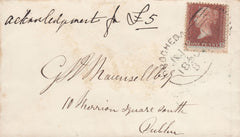 acknowledgment for £5
G. Maunsell Esq
10 Merrion Square South
Dublin